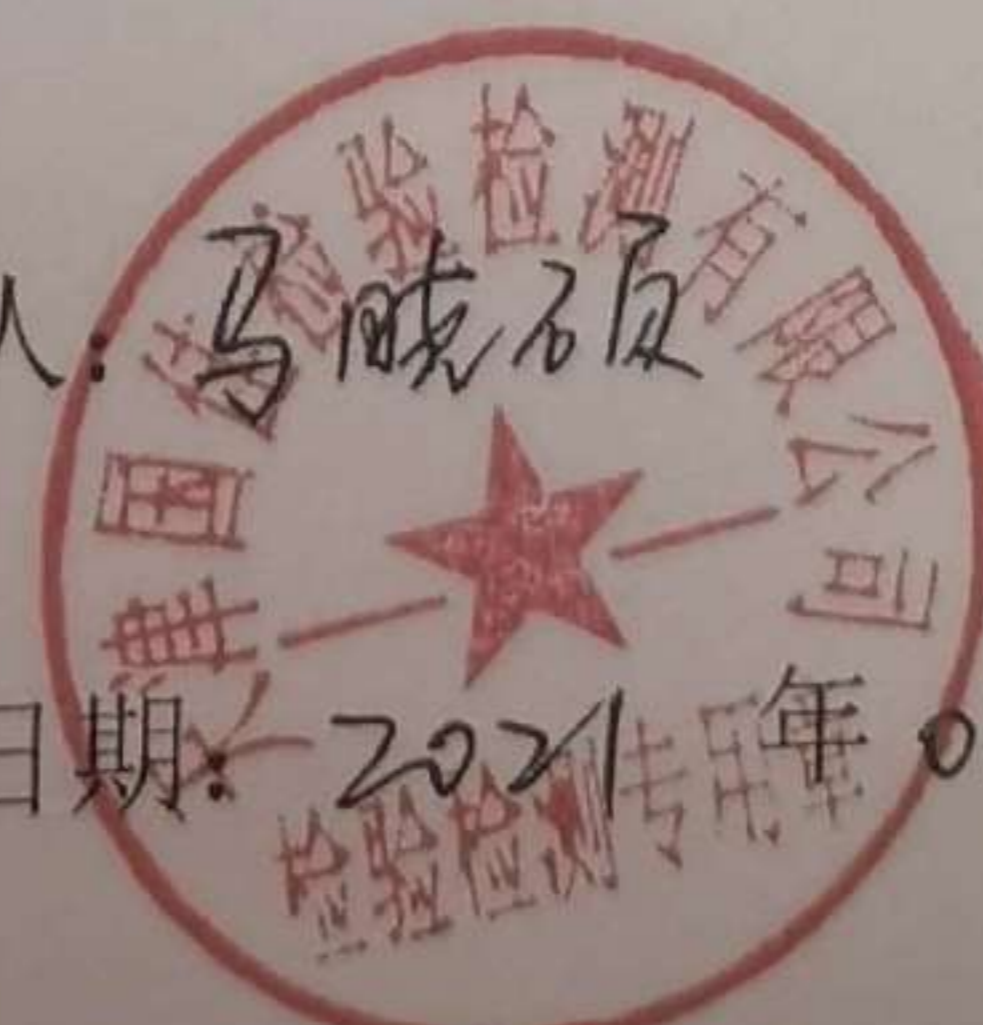 人:马晓硕
日期:2021年0
天津国
检验检测有限公司
检验检测专用章